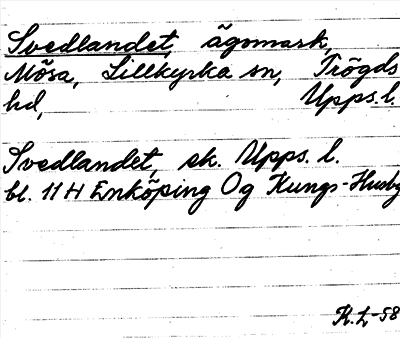 Svedlandet, ägomark,
Mösa, Lillkyrka sn, Trögds
hd, Upps. l.
Svedlandet, ek. Upps. l.
bl. 11 H Enköping Og Kungs-Husby
R. L-58